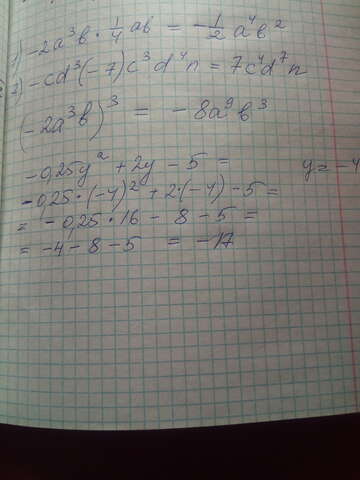 1) -2a³b · 1/4 ab = -1/2 a⁴b²
2) -cd³(-7)c³d⁴n = 7c⁴d⁷n
(-2a³b)³ = -8a⁹b³
-0,25y² + 2y - 5 = y = -4
-0,25·(-4)² + 2·(-4) - 5 =
= -0,25·16 - 8 - 5 =
= -4 - 8 - 5 = -17